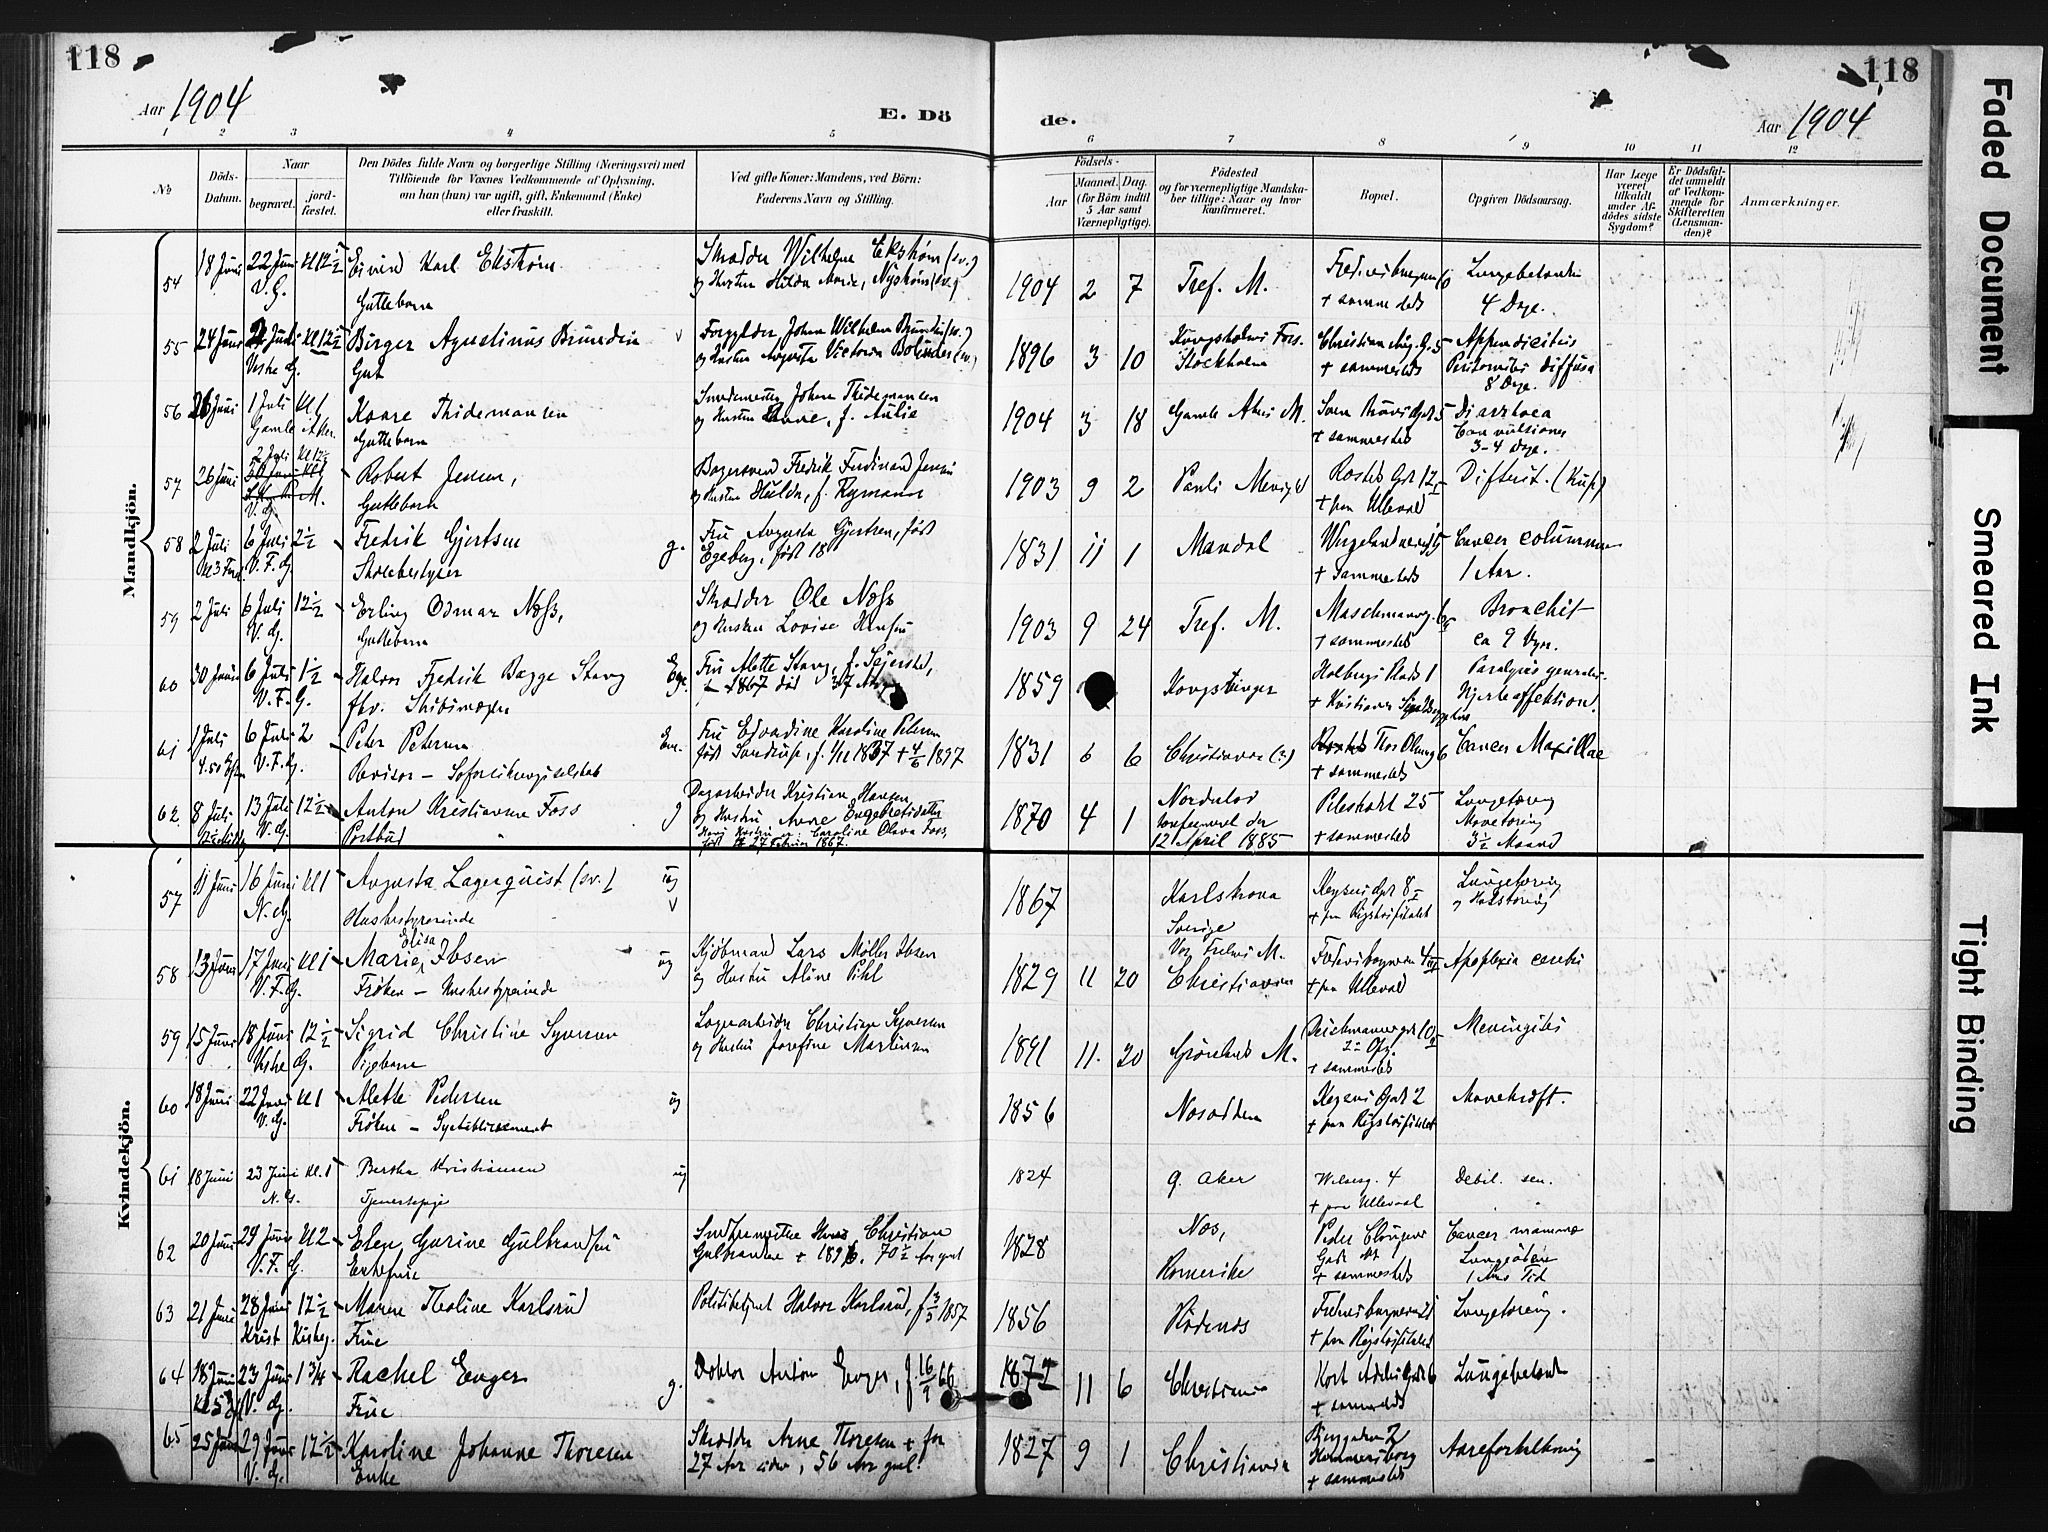 118
118
Aar 1904
E. Dö
de.
Aar 1904
1 2 3 4 5 6 7 8 9 10 11 12
No
Döds-
Datum.
Naar
begravet.
jord-
fæstet.
Den Dödes fulde Navn og borgerlige Stilling (Næringsvei) med
Tilföiende for Voxnes Vedkommende af Oplysning,
om han (hun) var ugift, gift, Enkemand (Enke)
eller fraskilt.
Ved gifte Koner: Mandens, ved Börn:
Faderens Navn og Stilling.
Födsels-
Aar
Maaned.
Dag.
(for Börn indtil
5 Aar samt
Værnepligtige).
Födested
og for værnepligtige Mandska-
ber tillige: Naar og hvor
konfirmeret.
Bopæl.
Opgiven Dödsaarsag.
Har Læge
været
tilkaldt
under Af-
dödes sidste
Sygdom?
Er Dödsfal-
det anmeldt
af Vedkom-
mende for
Skifteretten
(Lensman-
den)?
Anmærkninger.
Mandkjön.
54 18 Juni 22 Juni Kl 12½ Eivind Karl Ekstrøm Skrædder Wilhelm Ekstrøm (sv.) 1904 2 7 Tref. M. Lungebetændelse
V.G. Guttebarn og Hustru Hilda Marie, Nystrøm (sv.) + sammesteds 4 Dage.
55 24 Juni Juli Kl 12½ Birger Agustinus Brundin Forgylder Johan Wilhelm Brundin (sv.) 1896 3 10 Kungsholms Fors. Christian Aug. G. 5 Appendicitis
Vestre G. Gut og Hustru Augusta Victoria Bolinder (sv.) Stockholm + sammesteds Peritonitis diffusa
8 Dage.
56 26 Juni 1 Juli Kl. 1 Kaare Thidemansen Smedemester Johan Thidemansen 1904 3 18 Gamle Akers M. Diarrhoea
Gamle Aker. Guttebarn og Hustru Anne, f. Aulie + sammesteds Convulsioner
3-4 Dage.
2 Juli Kl 12½
57 26 Juni 30 Juni Kl 1 Robert Jensen, Bagersvend Fredrik Ferdinand Jensen 1903 9 2 Pauli Menighed Rosteds Gd. 12 Difterit. (Krup)
V.G. Guttebarn og Hustru Hulda, f. Rymann + paa Ulleval
58 2 Juli 6 Juli 2½ Fredrik Gjertsen g. Fru Augusta Gjertsen, født 1831 11 1 Mandal Wergelandsveien 15 Cancer columnae
V.F.G. Skolebestyrer Egeberg, født 18 + sammesteds 1 Aar.
59 2 Juli 6 Juli 12½ Erling Odmar Næss, Skrædder Ole Næss 1903 9 24 Tref. M. Maschmannsg. Bronchit
V.G. Guttebarn og Hustru Lovise Hansen + sammesteds ca 9 Dgr.
60 30 Juni 6 Juli 1½ Halvor Fredrik Bagge Stang Fru Alette Stang, f. Sejersted, 1859 Kongsvinger Holbergs Plads 1 Paralysis generalis.
V.F.G. fhv. Skibsmægler 1867 død 37 Hjerteaffektion.
61 1 Juli 6 Juli 2 Peter Petersen Em. Fru Edvardine Karoline Petersen 1831 6 6 Christiania (?) Thor Olsensg 6 Cancer Maxillae
V.F.G. Revisor – Soforsikringsselskab + 4/6 1897 + sammesteds
62. 8 Juli 13 Juli 12½ Anton Kristiansen Foss g Dagarbeider Kristian Hansen 1870 4 1 Nordalod Pilestrædet 25 Lungetæring
V.G. Postbud og Hustru Anne Engebretsdatter konfirmeret der + sammesteds Mavetæring
Hans Hustru er: Caroline Olava Foss, 12 April 1885 3½ Maaned
født 27 Februar 1867.
Kvindekjön.
57 11 Juni 16 Juni Kl 1 Augusta Lagerquist (sv.) ug 1867 Karlskrona Keysers Gd. 8 Lungetæring
N.G. Husbestyrerinde Sverige + paa Rigshospitalet og Halstæring
Elisa
58 13 Juni 17 Juni Kl 1 Marie Ibsen ug Kjøbmand Lars Møller Ibsen 1829 11 20 Vor Frelsers M. Apoplexia cerebri
V.F.G. Frøken – Husbestyrerinde og Hustru Aline Pihl Christiania + paa Ulleval
59 15 Juni 18 Juni 12½ Sigrid Christine Syversen Lagerarbeider Christian Syversen 1891 11. 20 Grønlands M. Deichmannsgd. 10 Meningitis
Vestre G. Pigebarn og Hustru Josefine Martinsen 2 Opg.
+ sammesteds
60 18 Juni 22 Juni Kl 1 Alette Pedersen ug 1856 Nesodden Keysers Gade 2 Mavekræft.
V.G. Frøken – Syetablissement + paa Rigshospitalet
61 18 Juni 23 Juni Kl. 1 Bertha Kristiansen ug 1824 G. Aker Wilsesg. 4 Debil. sen.
N.G. Tjenestepige + paa Ulleval
62 20 Juni 24 Juni Kl 2 Elen Gurine Gulbrandsen Christian 1828 Nes, Peder Clausens Cancer mammae
V.F.G. Enkefrue Gulbrandsen + 1896. 70½ Aar gml Romerike Gade Lungeødem
+ sammesteds 1 Aars Tid
63 21 Juni 28 Juni 12½ Maren Theoline Karlsrud Politibetjent Halvor Karlsrud, f 3/3 1857 1856 Rødenes Lungetæring.
Krist Kirkeg. Frue + paa Rigshospitalet
64 18 Juni 23 Juni 1¾ Rachel Enger g. Doktor Anton Enger, f 16/9 66 1872 11 6 Christiania Kort Adelersgd. 6 Lungebetænd
V.G. Frue + sammesteds
65 25 Juni 29 Juni 12½ Karoline Johanne Thoresen Skrædder Arne Thoresen + for 1827 9 1 Christiania Aareforkalkning
V.G. Enke 27 Aar siden, 56 Aar gml. Hammersborg
+ sammesteds
Faded Document
Smeared Ink
Tight Binding